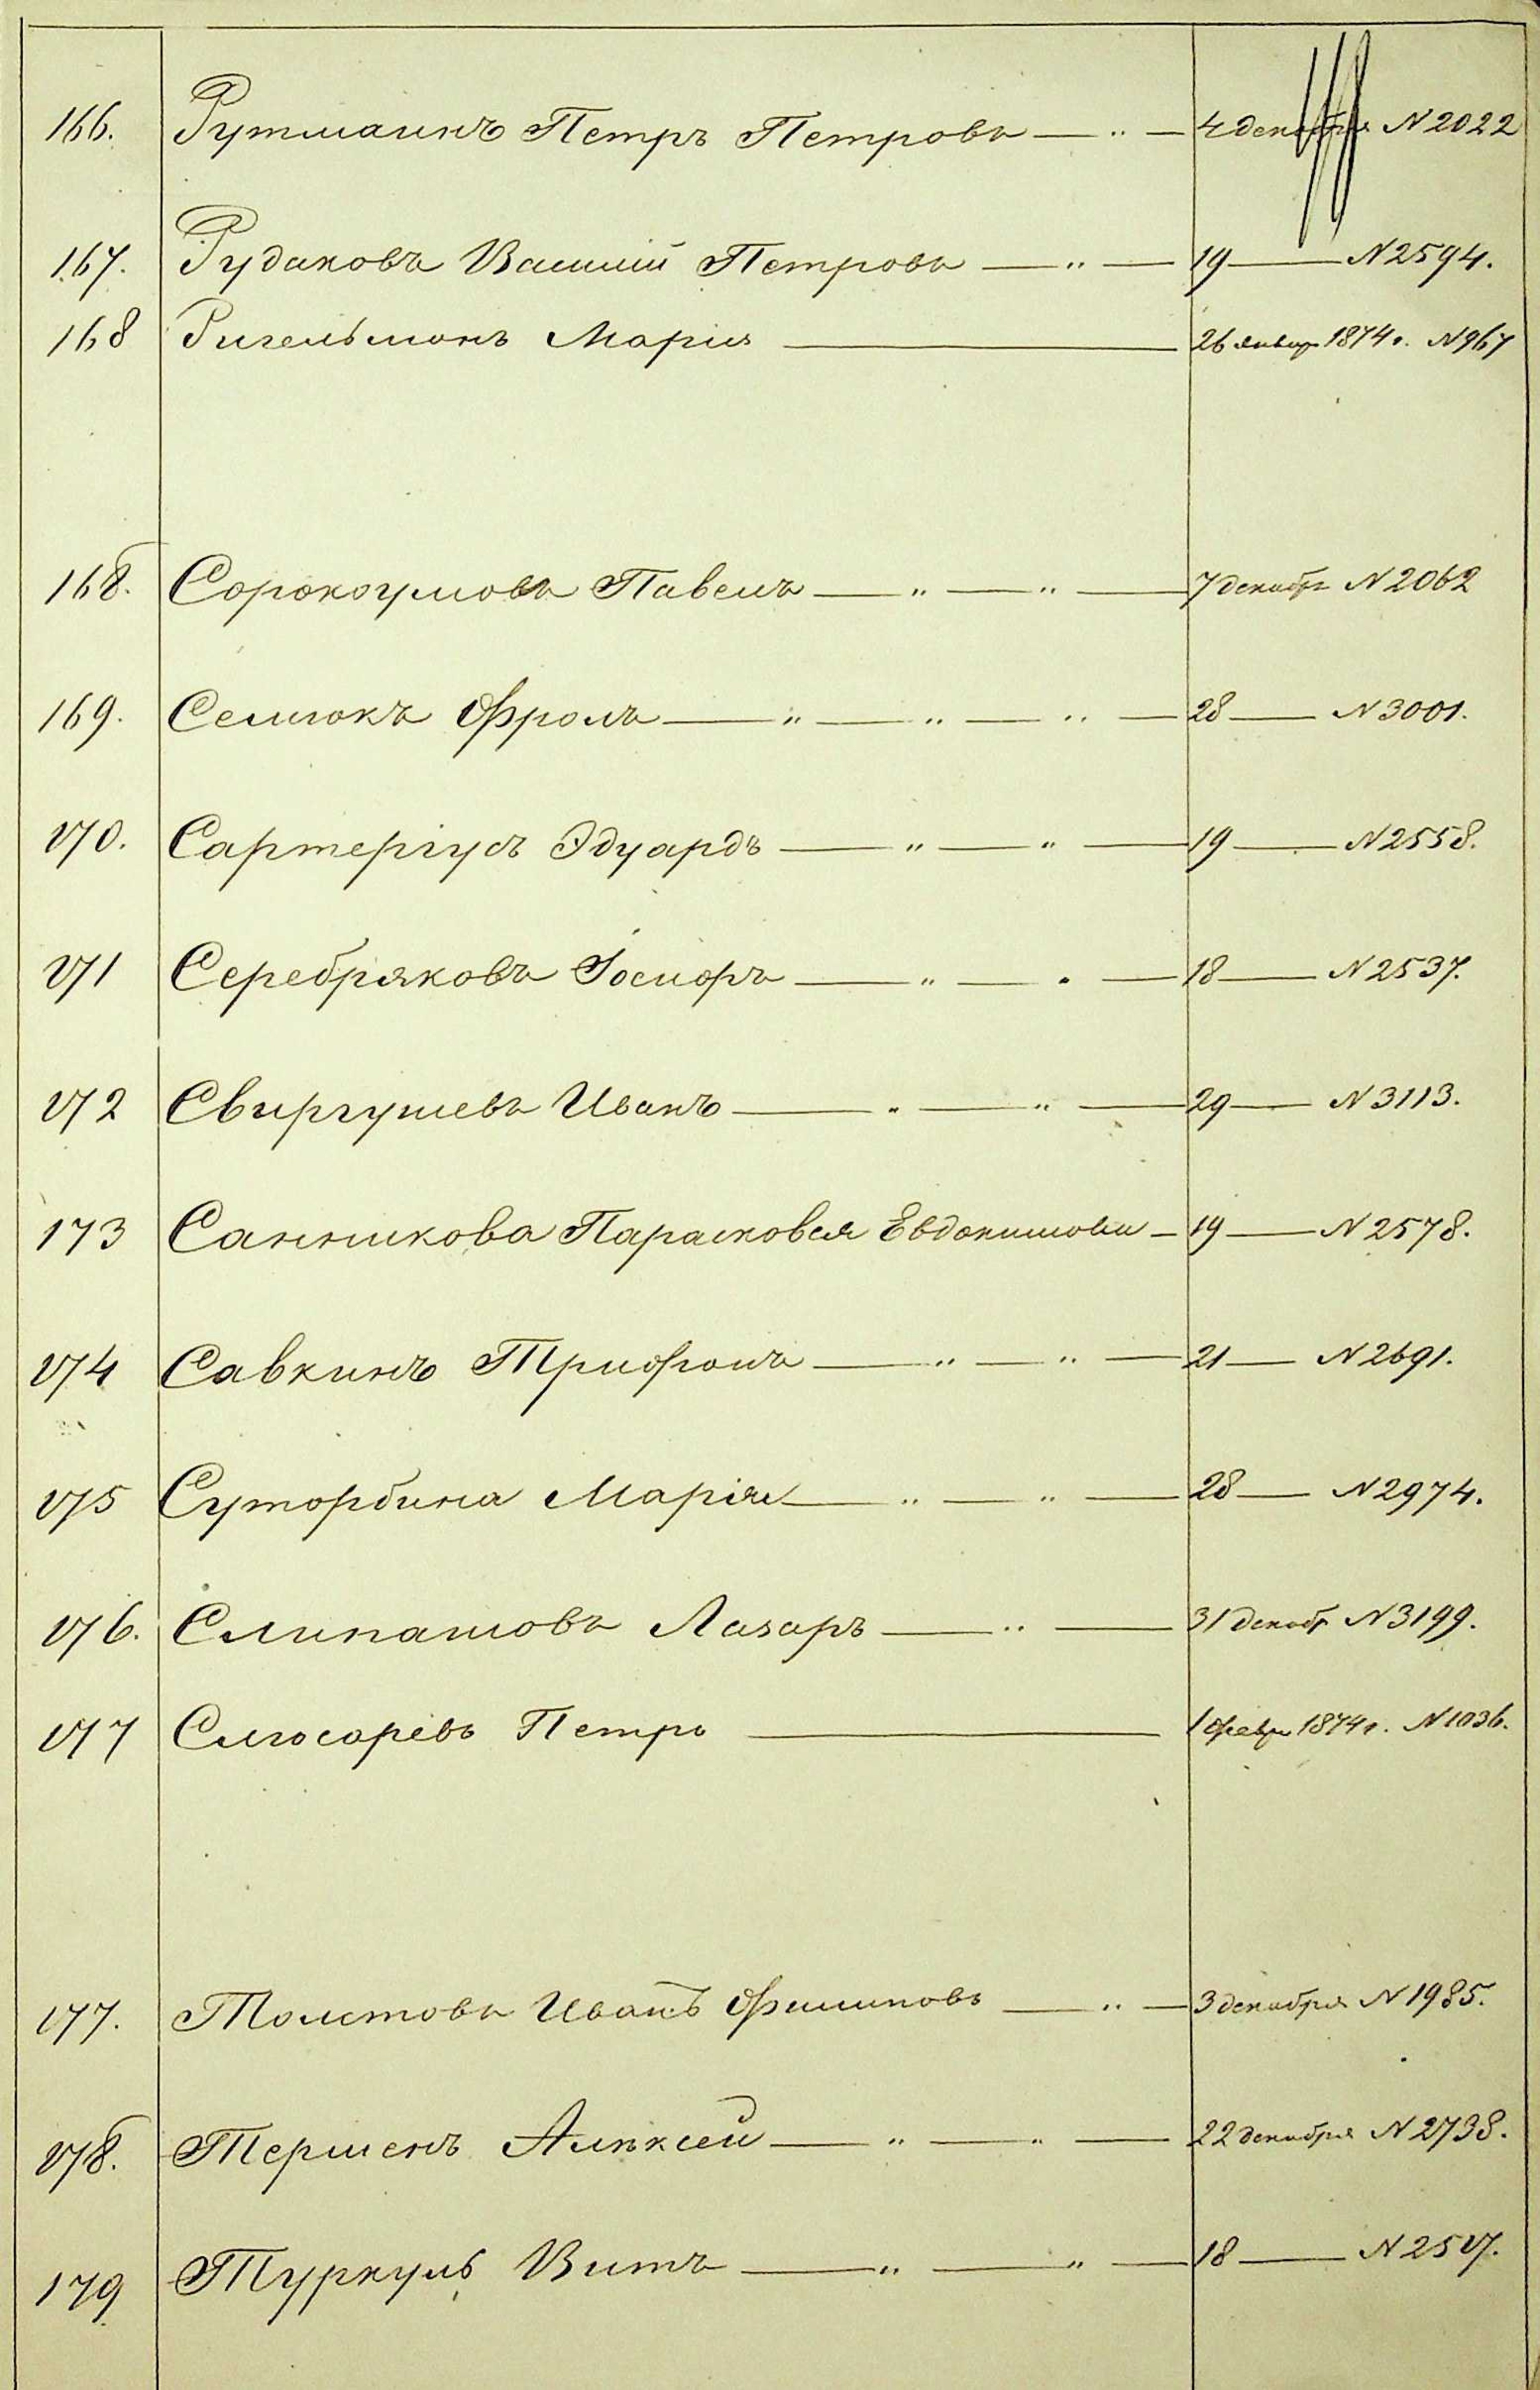 166. Рутманнъ Петръ Петровъ — " — 4 декабря N 2022
167. Рудаковъ Василий Петровъ — " — 19 — N 2594.
168 Ригельманъ Мария — 26 январ 1874 г. N 967
168. Сорокоумовъ Павелъ — " — " — 7 декабр N 2062
169. Семпокъ Фролъ — " — " — " — 28 — N 3001.
170. Сартергусъ Эдуардъ — " — " — 19 — N 2558.
171 Серебряковъ Іосифъ — " — " — 18 — N 2537.
172 Свиргушевъ Иванъ — " — " — 29 — N 3113.
173 Санникова Парасковья Евдокимова — 19 — N 2578.
174 Савкинъ Трифонъ — " — " — 21 — N 2691.
175 Суторбина Марія — " — " — 28 — N 2974.
176. Слипашовъ Лазаръ — " — 31 декабр N 3199.
177 Слюсаревъ Петръ — 1 февр 1874 г. N 1036.
177. Толстовъ Иванъ Филиповъ — " — 3 декабря N 1985.
178. Термень Алексей — " — " — 22 декабря N 2738.
179 Туркулъ Витъ — " — " — 18 — N 2517.